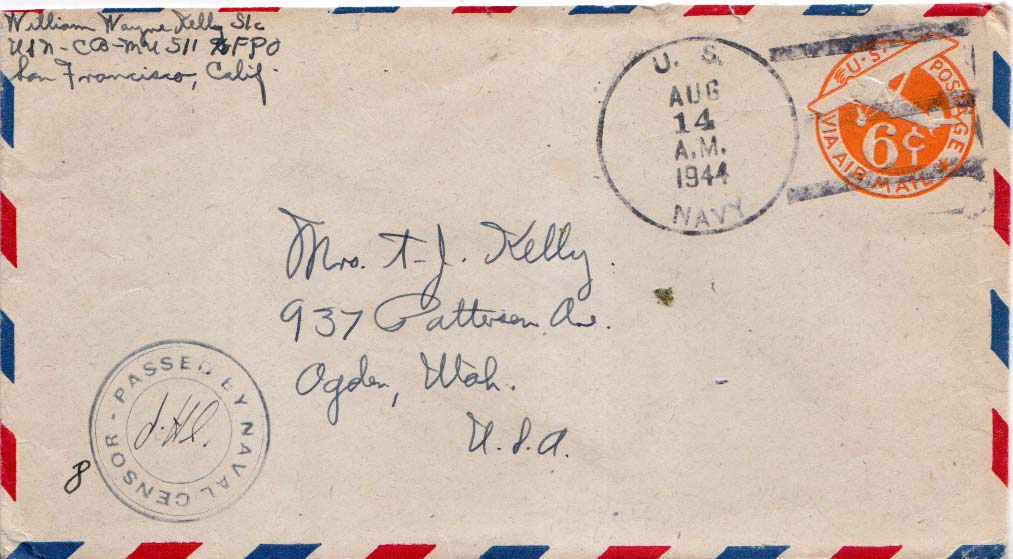 William Wayne Kelly S1c
USN-CB-MU 511 FPO
San Francisco, Calif.
U. S.
AUG
14
A.M.
1944
NAVY
U.S. POSTAGE
6¢
VIA AIR MAIL
Mrs. A. J. Kelly
937 Patterson Av.
Ogden, Utah.
U.S.A.
PASSED BY NAVAL CENSOR
8